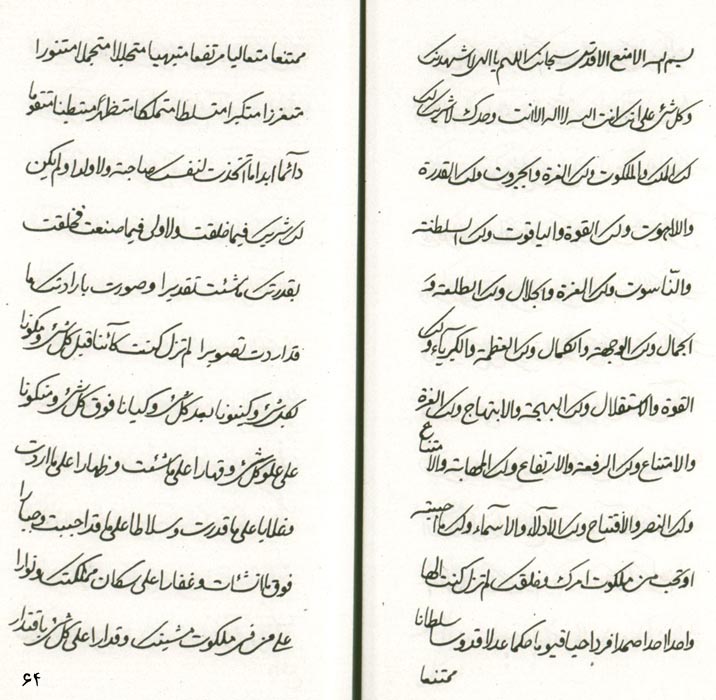 بسم الله الامنع الاقدس سبحانك اللهم يا الهي لاشهدنك
وكل شئ على انك انت الله لا اله الا انت وحدك لا شريك لك
لك الملك والملكوت ولك العزة والجبروت ولك القدرة
واللاهوت ولك القوة والياقوت ولك السلطنة
والناسوت ولك العزة والجلال ولك الطلعة و
الجمال ولك الوجهة والكمال ولك العظمة والكبرياء ولك
القوة والاستقلال ولك البهجة والابتهاج ولك العزة
والامتناع ولك الرفعة والارتفاع ولك المهابة والامتناع
ولك النصر والافتتاح ولك الادلاء والاسماء ولك ما احببته
او تحب من ملكوت امرك وخلقك لم تزل كنت الها
واحدا احدا صمدا فردا حيا قيوما حكما عدلا قدوسا سلطانا
ممتنعا
ممتنعا متعاليا مرتفعا متبهيا متجللا متجملا متنورا
متعززا متكبرا متسلطا متملكا متظهرا متبطنا متقوما
دائما ابدا ما اتخذت لنفسك صاحبة ولا ولدا ولم يكن
لك شريك فيما خلقت ولا ولي فيما صنعت قد خلقت
بقدرتك ما شئت تقديرا وصورت بارادتك ما
قد اردت تصويرا لم تزل كنت كائنا قبل كل شئ ومكونا
لكل شئ وكينونا بعد كل شئ وكيانا فوق كل شئ ومتكونا
على علو كل شئ وقهارا على ما شئت وظهارا على ما اردت
وغلابا على ما قدرت وسلاطا على ما قد احببت وجبارا
فوق ما انشئت وغفارا على سكان مملكتك ونوارا
على من في ملكوت مشيتك وقدارا على كل شئ باقتدار
۶۴